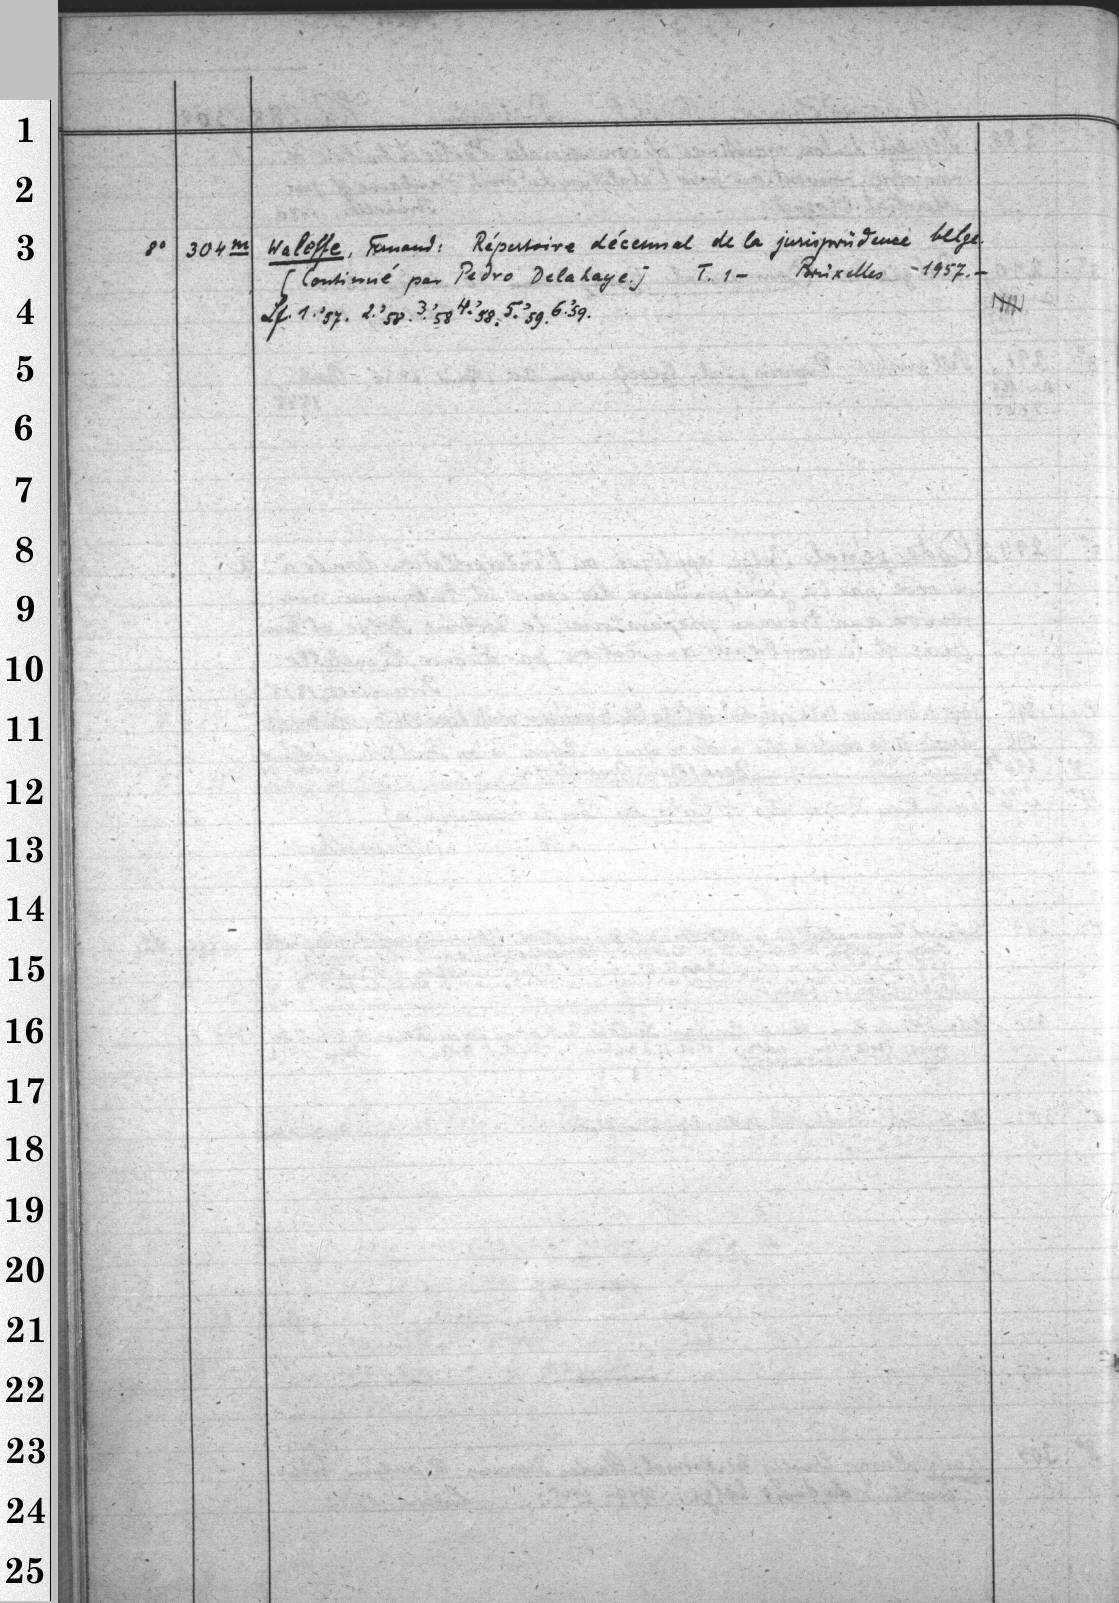 1
2
3
8° 304 m Waleffe, Fernand: Répertoire décennal de la jurisprudence belge.
[Continué par Pedro Delahaye.] T. 1- Bruxelles -1957.-
4
Lf. 1.'57. 2.'58. 3.'58 4.'58. 5.'59. 6.'59.
5
6
7
8
9
10
11
12
13
14
15
16
17
18
19
20
21
22
23
24
25